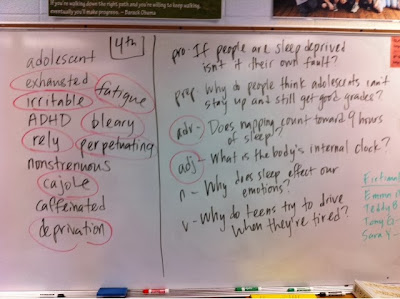 If you're walking down the right path and you're willing to keep walking,
eventually you'll make progress. - Barack Obama
4th
adolescent
exhausted
irritable
fatigue
ADHD
bleary
rely
perpetuating
nonstrenuous
cajole
caffeinated
deprivation
pro- If people are sleep deprived
isn't it their own fault?
prep- Why do people think adolescents can't
stay up and still get good grades?
adv- Does napping count toward 9 hours
of sleep?
adj- What is the body's internal clock?
n - Why does sleep effect our
emotions?
v- Why do teens try to drive
when they're tired?
Emma
Teddy B
Tony
Sara Y